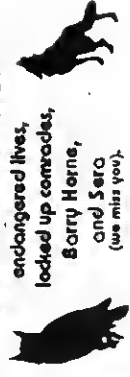 endangered lives,
locked up comrades,
Barry Horne,
and Sera
(we miss you).